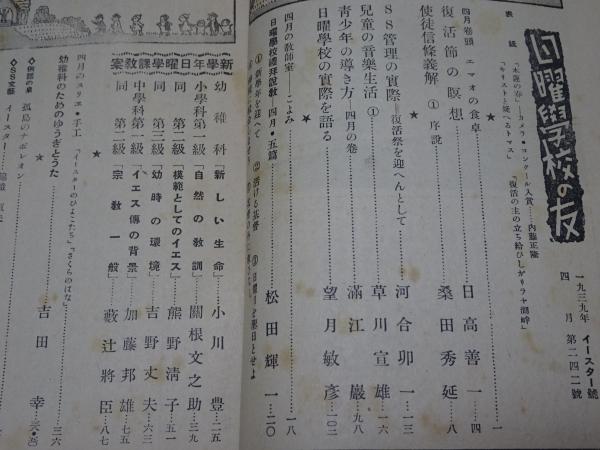 日曜學校の友
一九三九年 イースター號
四月 第二四二號
表紙
「水蓮の春」―カメラ・コンクール入賞……内藤正隆
「キリストと使へるトマス」 「復活の主の立ち給ひしガリラヤ湖畔」
四月卷頭 エマオの食卓……一
復活節の瞑想……日高善一……四
使徒信條義解 ① 序説……桑田秀延……八
★
SS管理の實際―復活祭を迎へんとして……河合卯一……一三
兒童の音樂生活 ①……草川宣雄……一六
青少年の導き方―四月の卷……滿江巖……九八
日曜學校の實際を語る……望月敏彥……一〇二
★
四月の教師室―こよみ……一八
日曜學校禮拜説教 四月・五篇……松田輝一……二〇
① 新學年を迎へて ② 活ける基督 ③ 日曜日を聖日とせよ
新學年日曜學課教案
幼稚科「新しい生命」……小川豊……二五
小學科第一級「自然の教訓」……關根文之助……三九
同 第二級「模範としてのイエス」……熊野清子……五一
同 第三級「幼時の環境」……吉野丈夫……六三
中學科第一級「イエス傳の背景」……加藤邦雄……七五
同 第二級「宗教一般」……藪辻將臣……八七
★
四月のヌリエ・手工「イースターのひよこたち」「さくらのはな」……三六
幼稚科のためのゆうぎとうた……吉田幸……三八・五〇
★
◇例話の泉 孤島のナポレオン
◇SS文藝 イースター